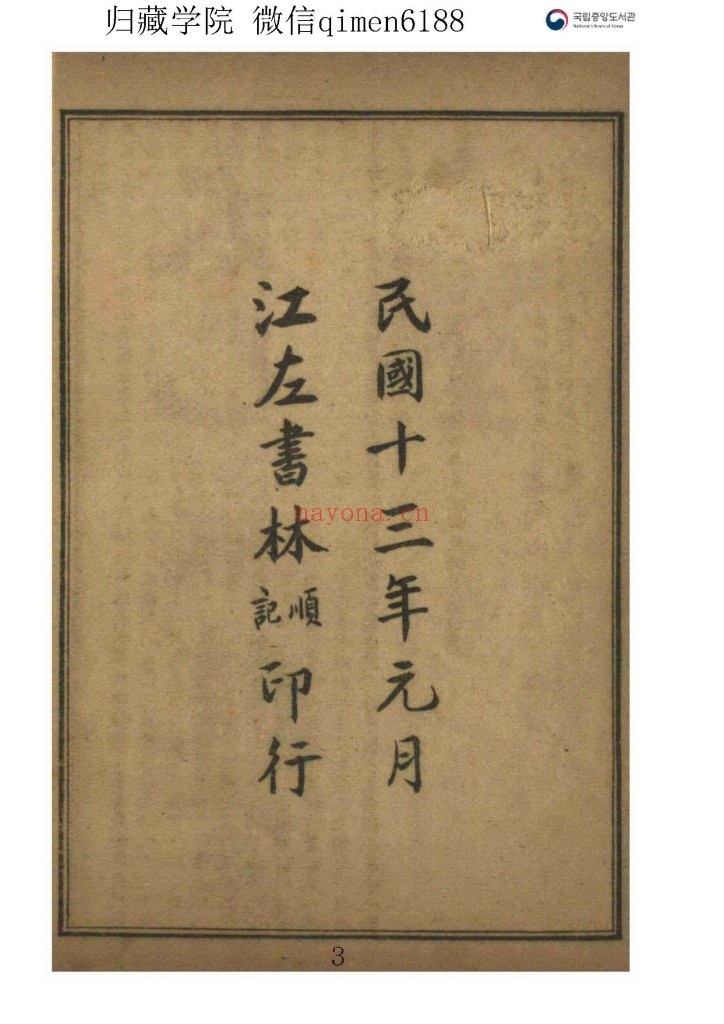 归藏学院 微信qimen6188
국립중앙도서관
National Library of Korea
民國十三年元月
江左書林順記印行
nayona.cn
3